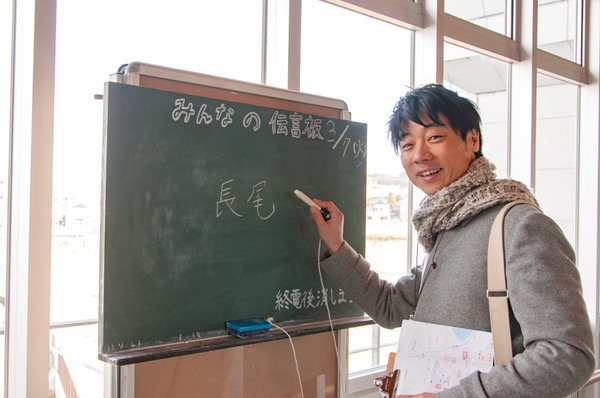 みんなの伝言板 3/7(火)
長尾
終電後消します